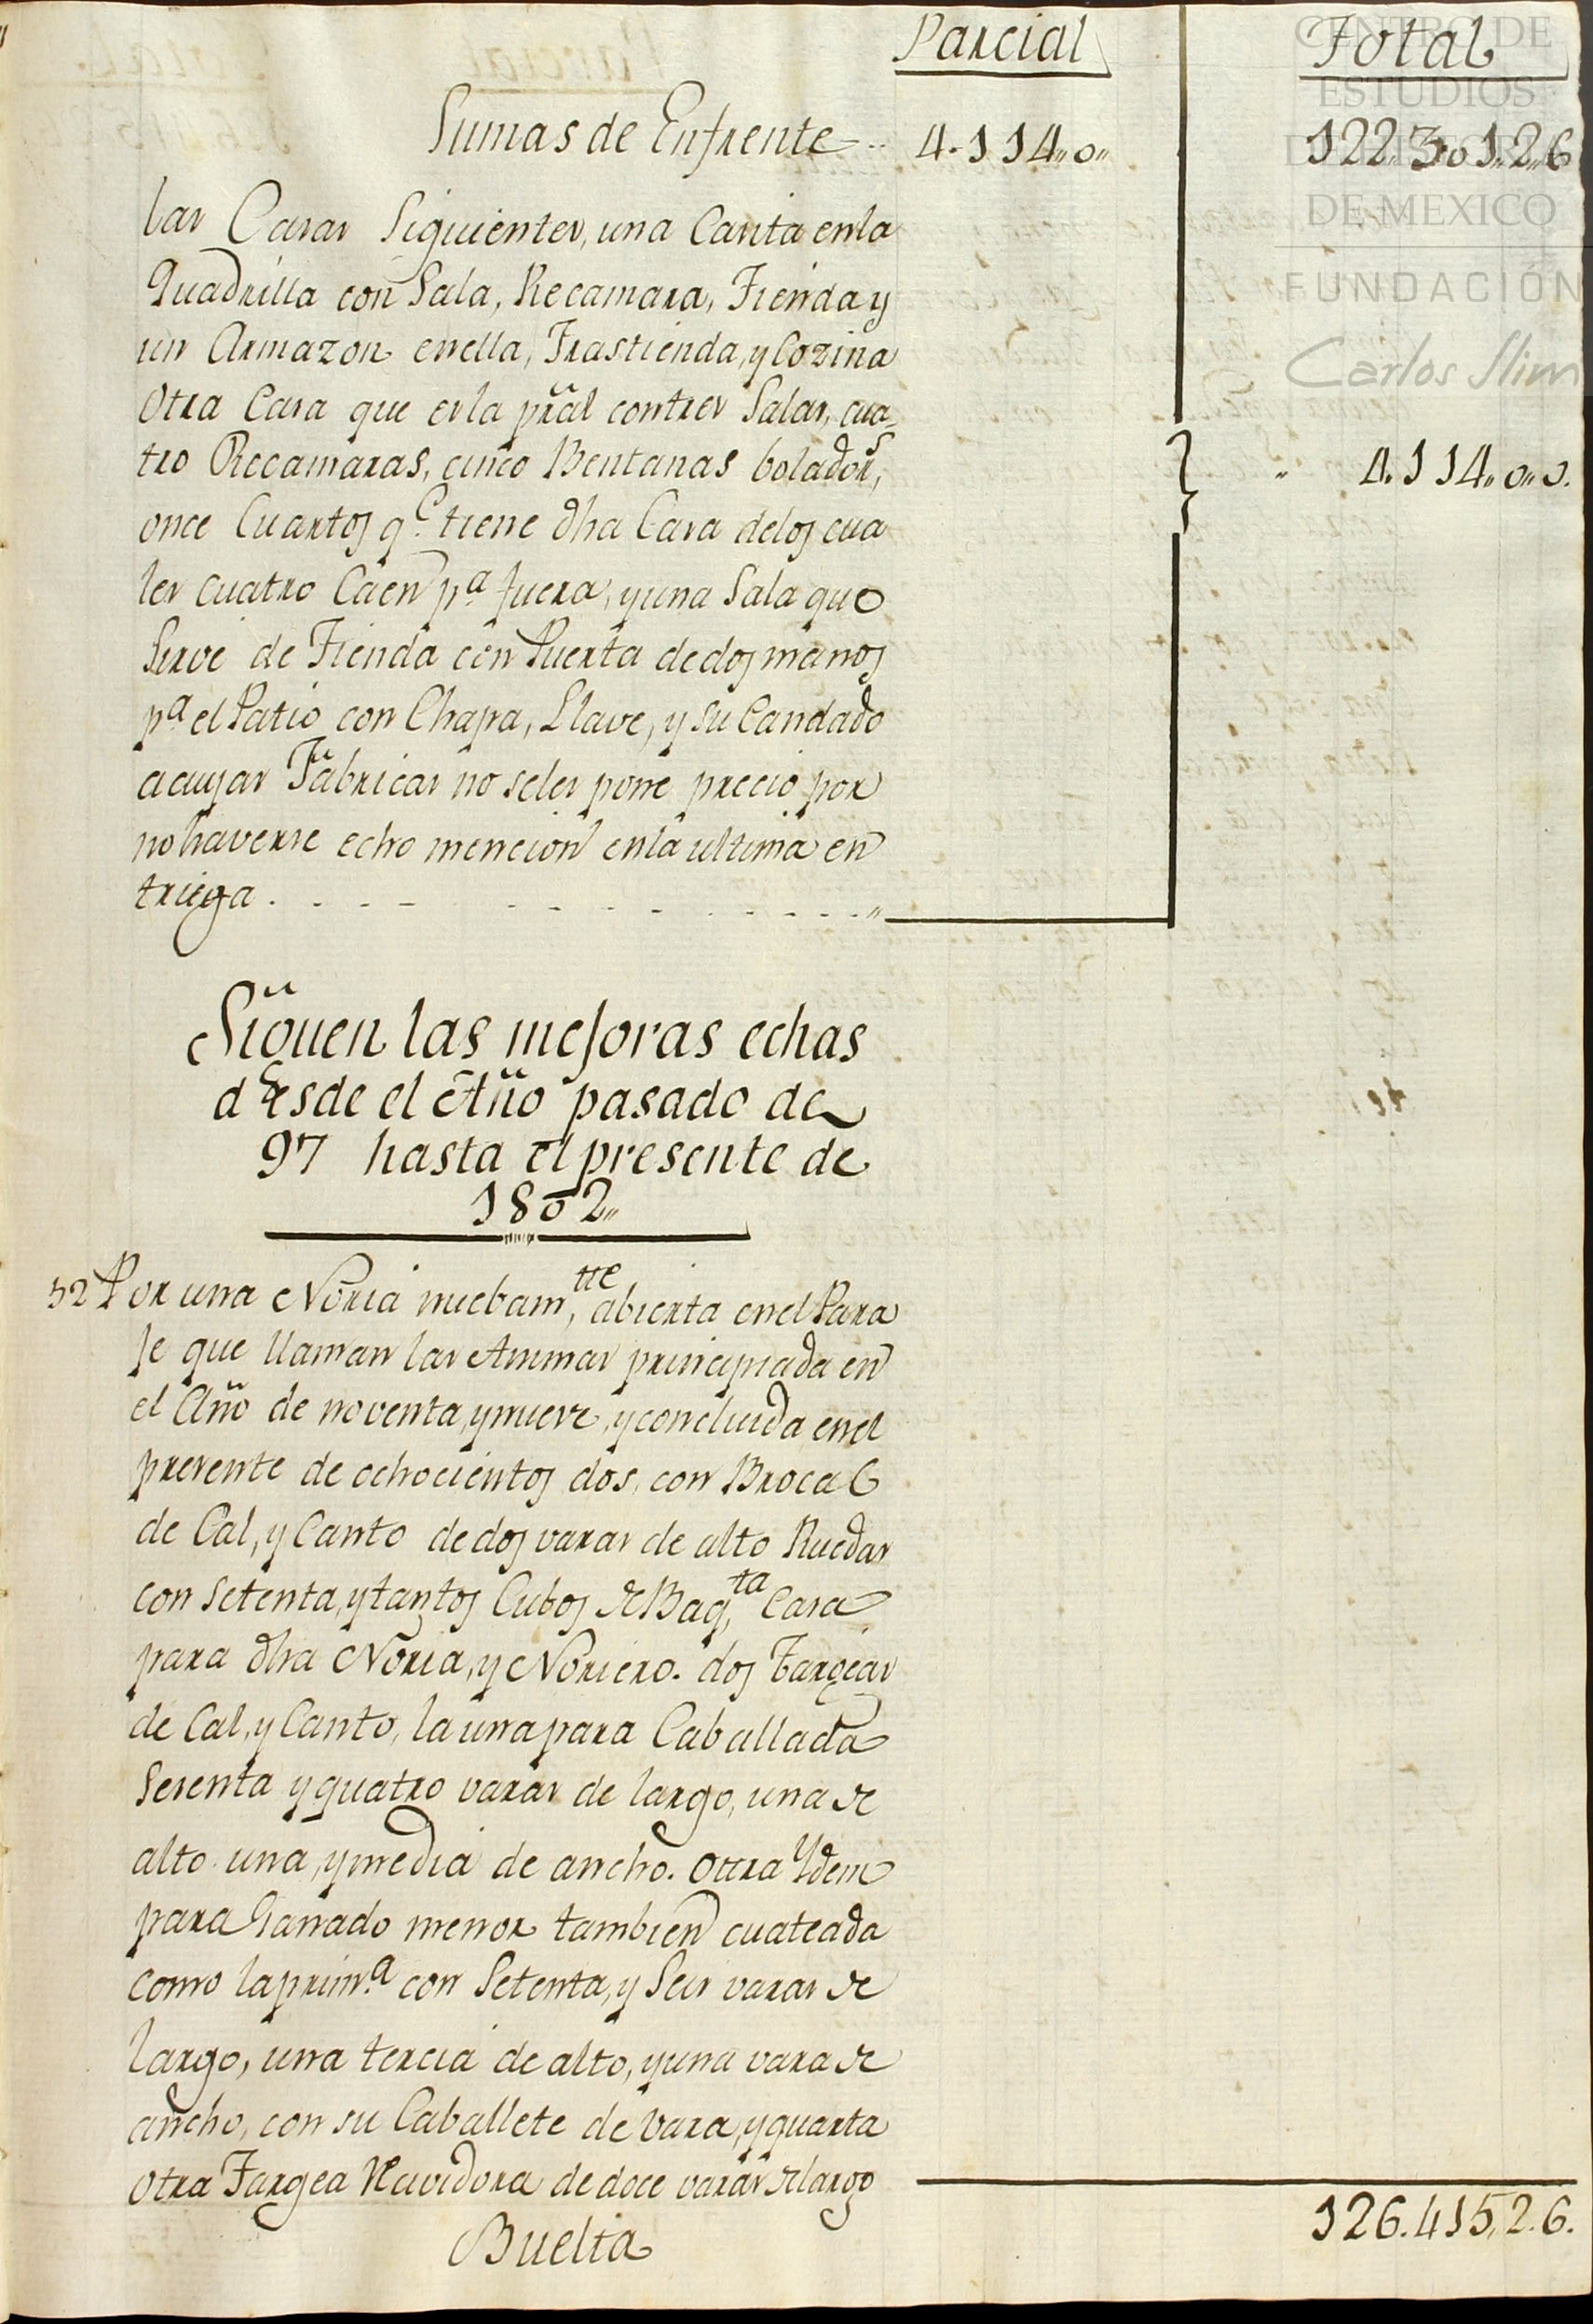 Parcial Total
Sumas de Enfrente .. 4.114,,0,, 122,,301,,2,,6
las Casas Siguientes, una Casita enla
Quadrilla con Sala, Recamara, Tienda y
un Armazon enella, Trastienda, y Cozina
Otra Casa que esla pr̃al contres Salas, cua-
tro Recamaras, cinco Bentanas boladors,
once Cuartos q.e tiene dha Casa delos cua
les cuatro Caen p.a fuera, yuna Sala que
Serve de Tienda con Puerta dedos manos
p.a el Patio con Chapa, Llave, y su Candado
acuyas Fabricas no seles pone precio por
nohaverse echo mencion enla ultima en
triega. - - - - - - - - - - - - ,,
4.114,,0,,0.
Siguen las mejoras echas
desde el Año pasado de
97 hasta el presente de
1802,,
52 Por una Noria nuebam,tte abierta enel Para
je que llaman las Animas principiada en
el Año de noventa, ynueve, yconcluida enel
presente de ochocientos dos, con Brocal
de Cal, y Canto dedos varas de alto Ruedas
con setenta, ytantos Cubos de Baq,ta Casa
para dha Noria, y Noriero. dos Targeas
de Cal, y Canto, launa para Caballada
Sesenta yquatro varas de largo, una de
alto una, ymedia de ancho. Otra Ydem
para Ganado menor tambien cuateada
como laprim.a con Setenta, y Seis varas de
largo, una tercia de alto, yuna vara de
ancho, con su Caballete de vara, yquarta
Otra Targea de doce varas de largo
Buelta 126.415,,2.6.
CENTRO DE
ESTUDIOS
DE HISTORIA
DE MEXICO
FUNDACIÓN
Carlos Slim